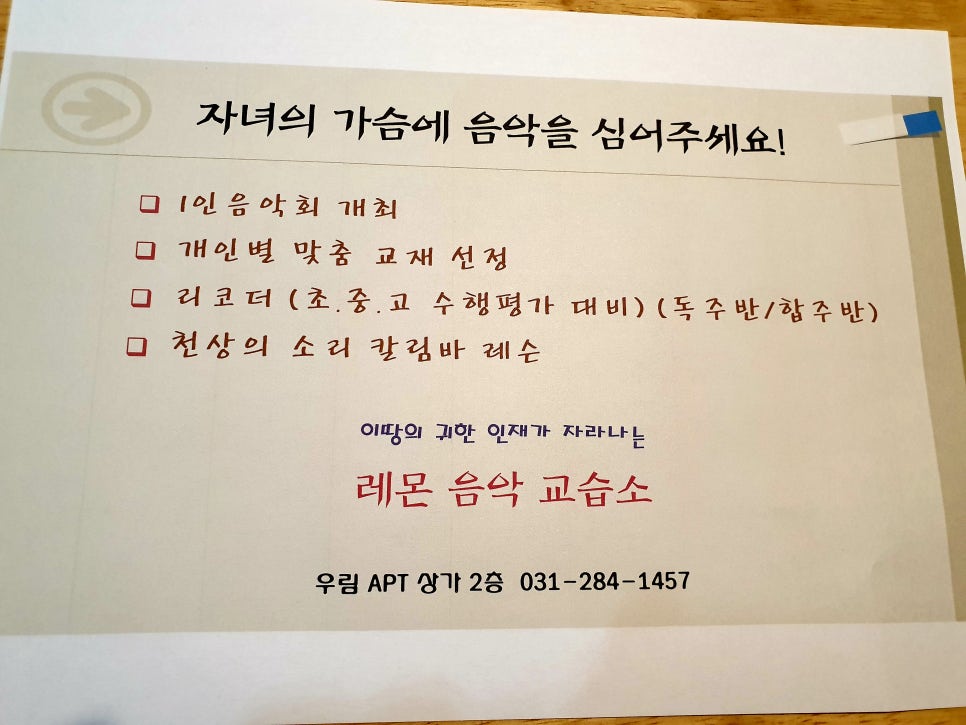 자녀의 가슴에 음악을 심어주세요!
1인음악회 개최
개인별 맞춤 교재 선정
리코더 (초.중.고 수행평가 대비) (독주반/합주반)
천상의 소리 칼림바 레슨
이땅의 귀한 인재가 자라나는
레몬 음악 교습소
우림 APT 상가 2층 031-284-1457